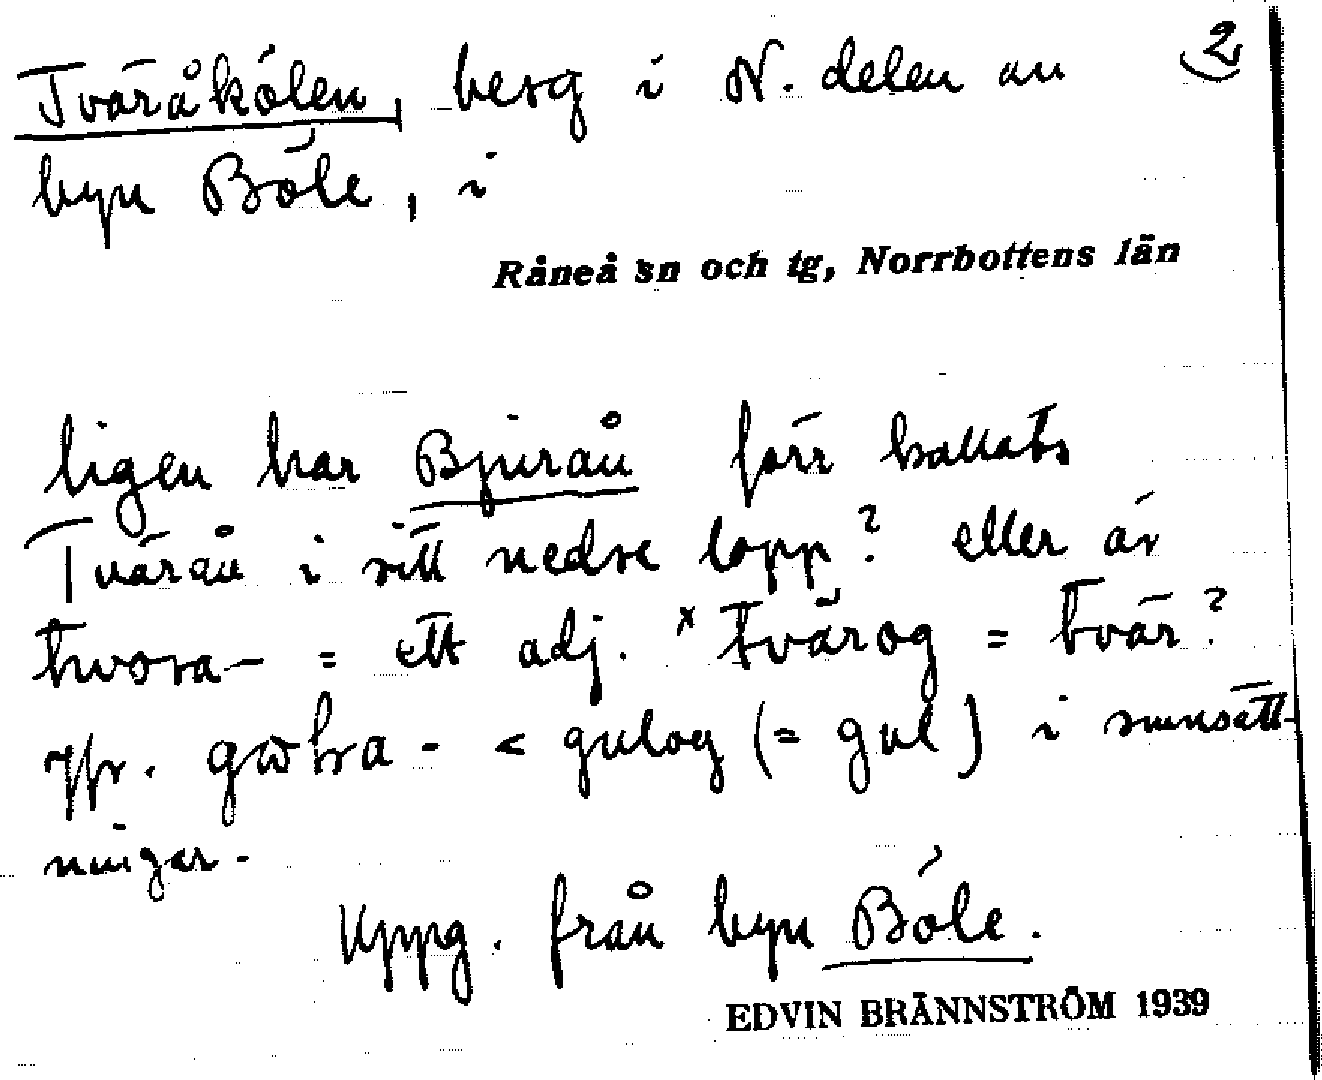 Tväråkölen, berg i N. delen av 2
byn Böle, i
Råneå sn och tg, Norrbottens län
ligen har Bjurån förr kallats
Tvärån i sitt nedre lopp? eller är
tvora- = ett adj. *tvärog = tvär?
Jfr. gωlra- < gulog (= gul) i sunsätt-
ningar.
Uppg. från byn Böle.
EDVIN BRÄNNSTRÖM 1939